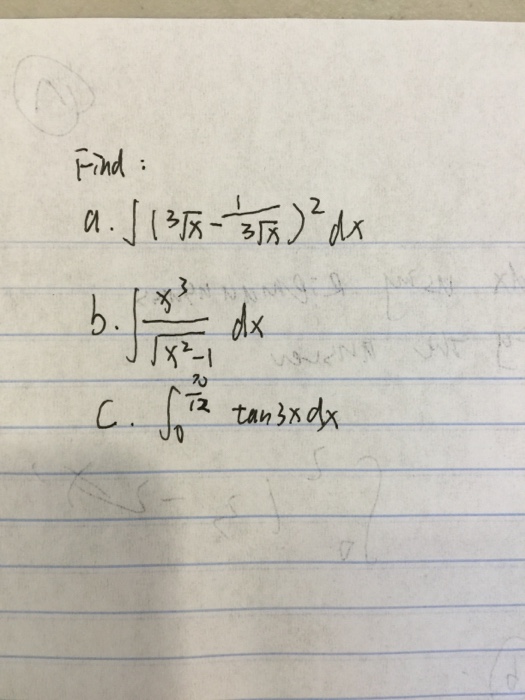 Find :
a. ∫ (3√x - 1/(3√x))² dx
b. ∫ x³/√(x²-1) dx
c. ∫₀^(π/12) tan3x dx